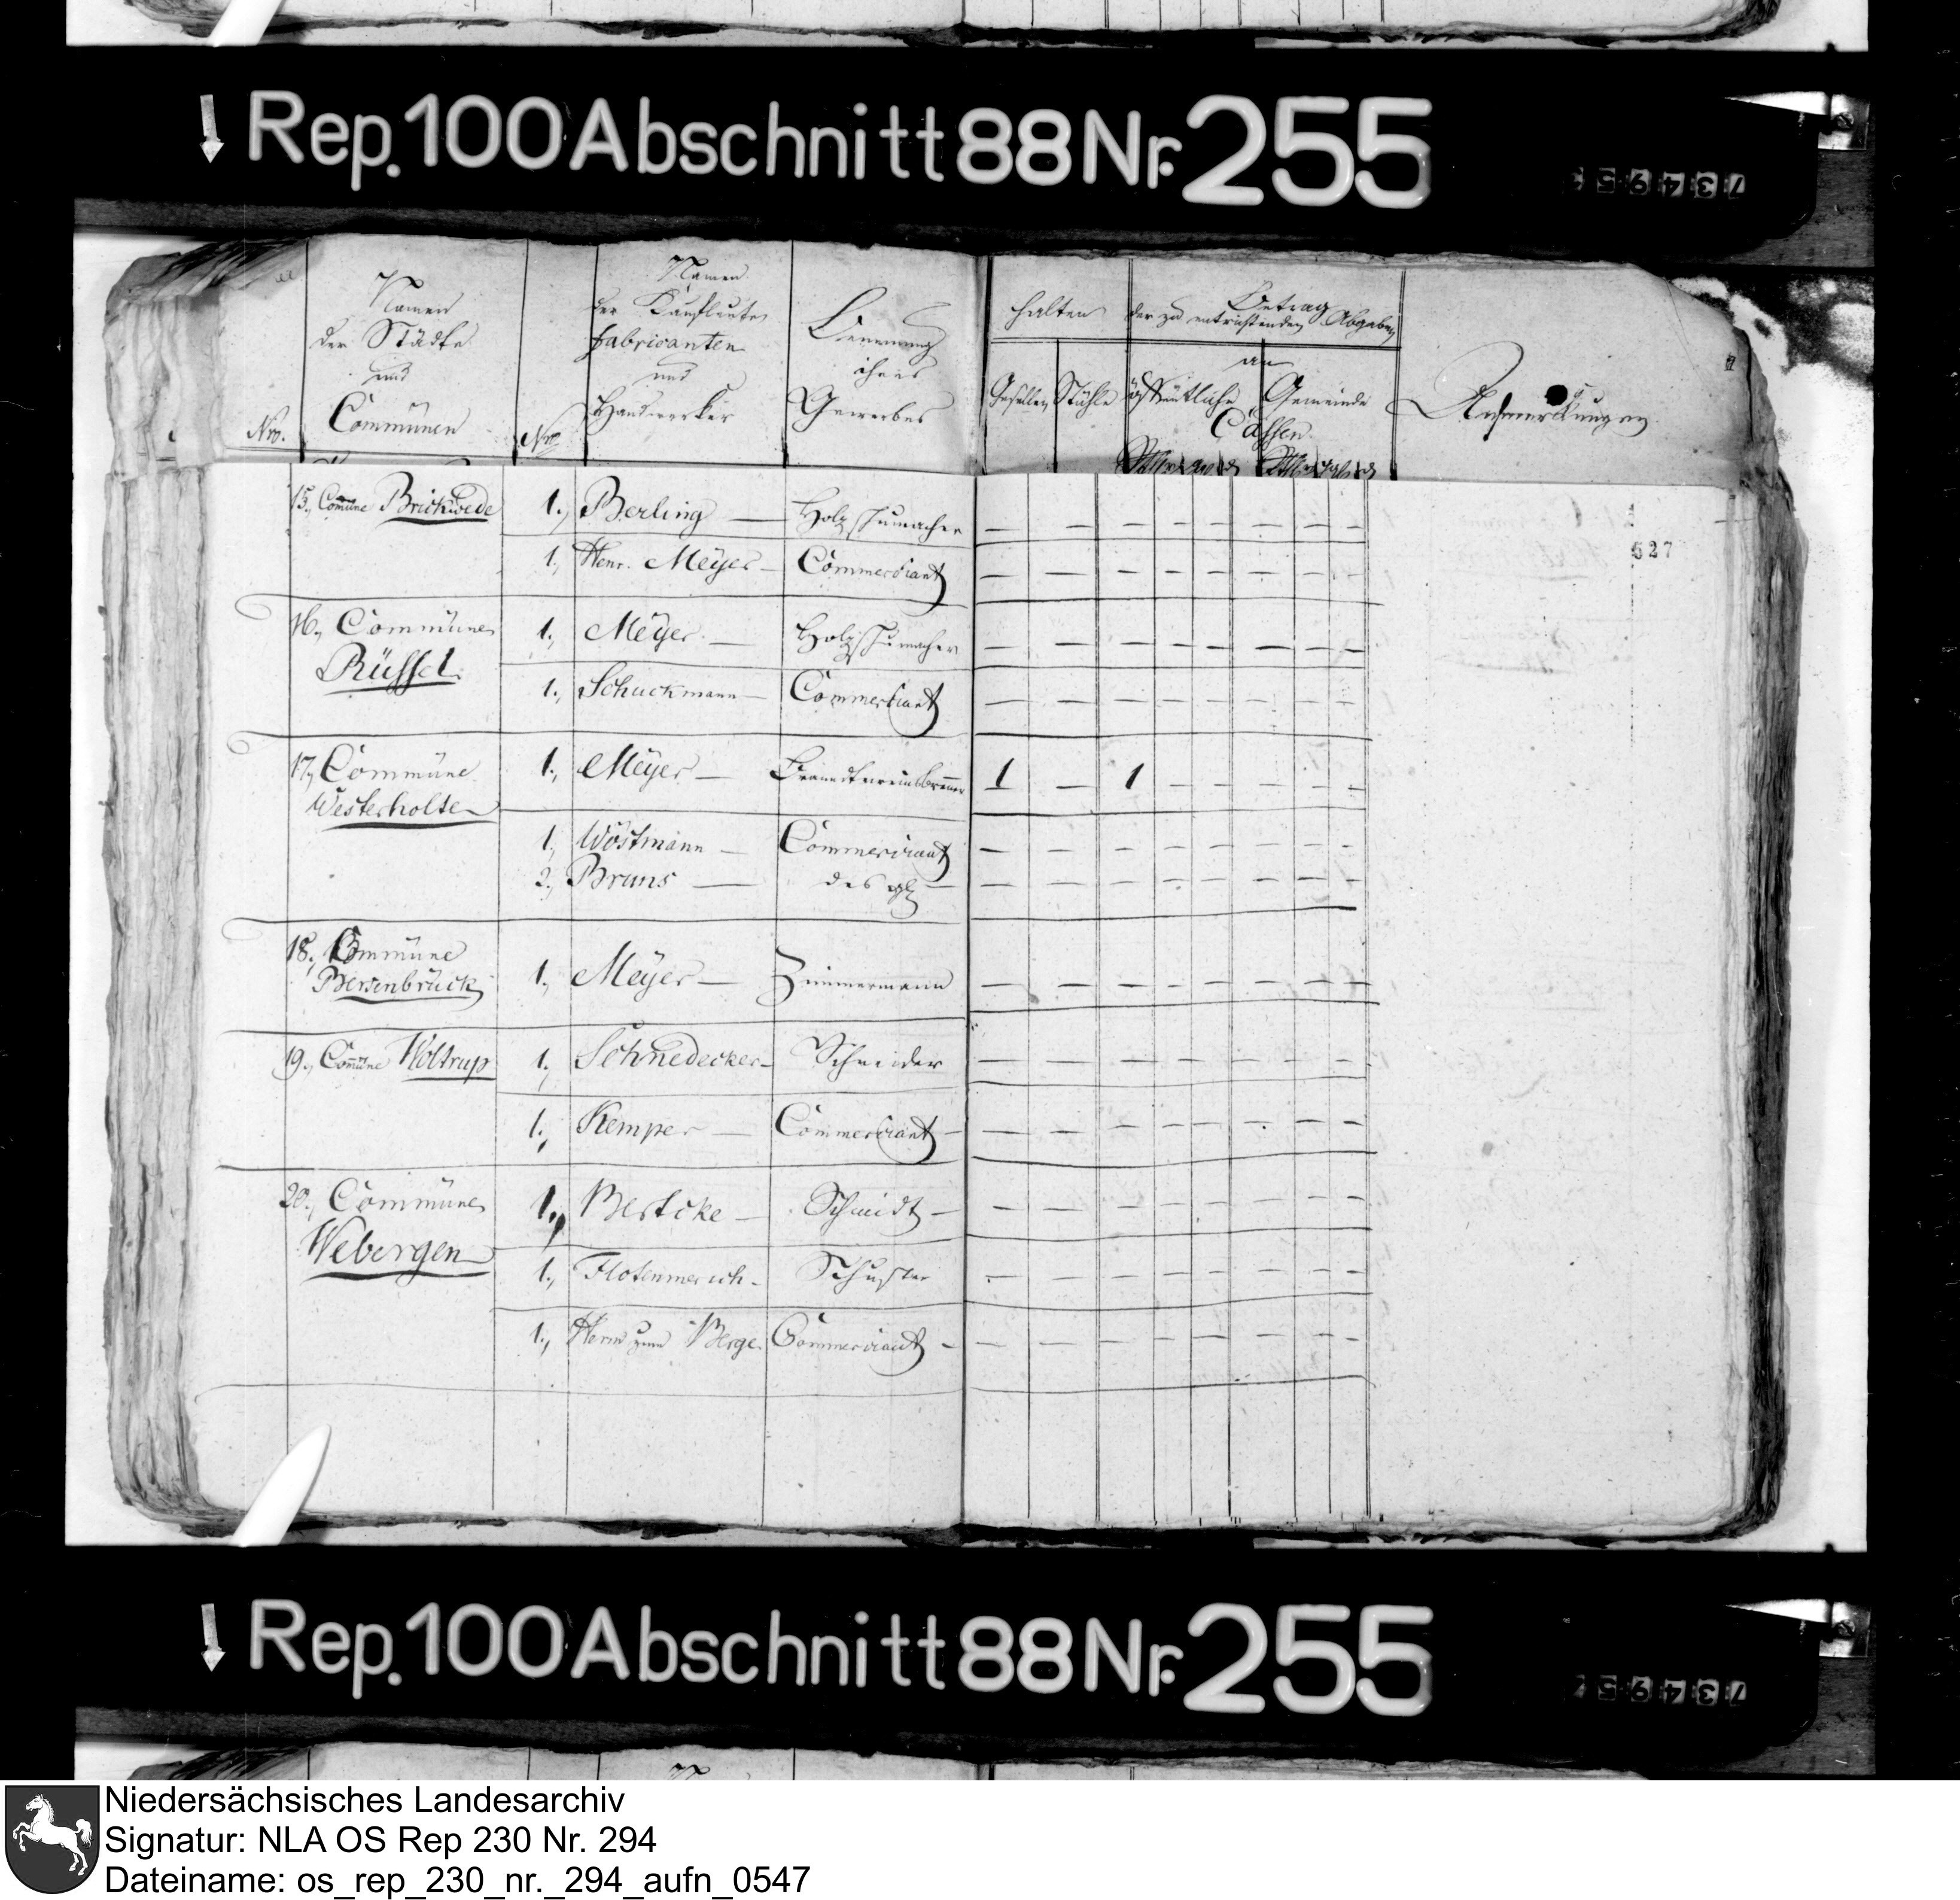 Rep. 100 Abschnitt 88 Nr. 255
Nro.
Namen
der Städte
und
Communen
Nro
Namen
der Kaufleute
Fabricanten
und
Handwerker
Benennung
ihres
Gewerbes
halten
Gesellen Stühle
Betrag
der zu entrichtenden Abgaben
an
öffentliche Gemeinde
Cassen
Anmerkungen
627
15., Com̄üne Brickwede 1., Berling — Holzschumacher — — — — — — — —
1., Henr. Meÿer — Commerciant — — — — — — — —
16., Commüne 1., Meÿer — Holzschumacher — — — — — — — —
Rüssel.
1., Schuckmann — Commerciant — — — — — — — —
17., Commüne 1., Meÿer — Brandtweinsbrenner 1 — 1 — — — — —
Westerholte
1., Wöstmann — Commerciant — — — — — — — —
2., Bruns — desgl — — — — — — — —
18., Commüne
Bersenbrück 1., Meÿer — Zimmermann — — — — — — — —
19., Com̄üne Woltrup 1., Schnedecker — Schneider — — — — — — — —
1., Kemper — Commerciant — — — — — — — —
20., Commüne 1., Bertcke — Schmidt — — — — — — — —
Webergen
1., Flotenmersch — Schuster — — — — — — — —
1., Herm zum Berge. Commerciant — — — — — — — —
Rep. 100 Abschnitt 88 Nr. 255
Niedersächsisches Landesarchiv
Signatur: NLA OS Rep 230 Nr. 294
Dateiname: os_rep_230_nr._294_aufn_0547